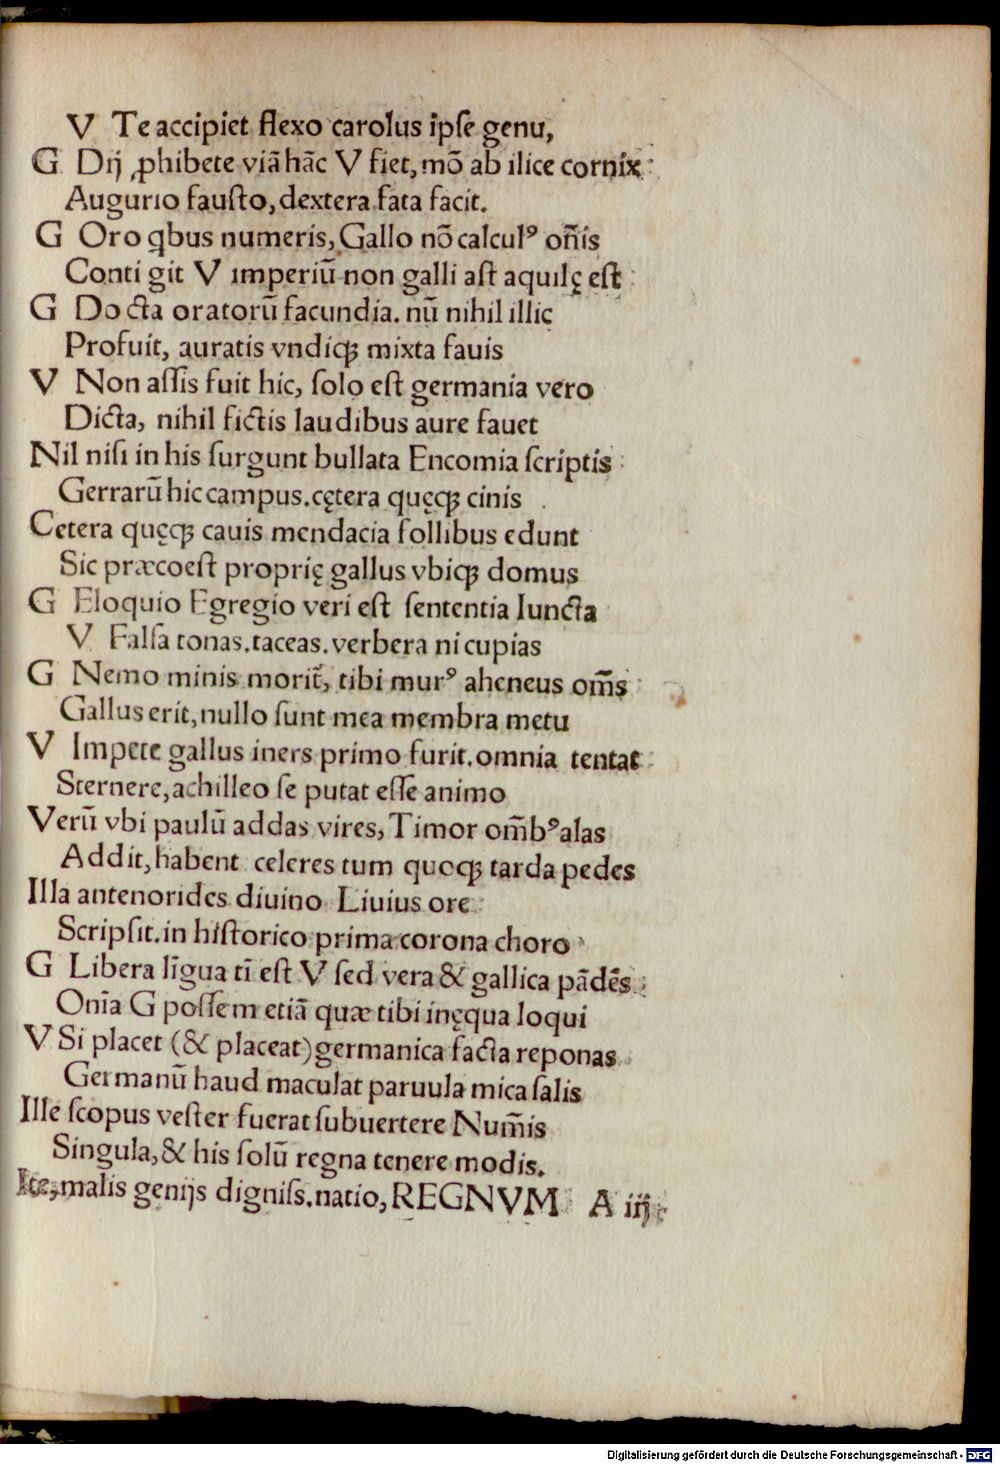 V Te accipiet flexo carolus ipſe genu,
G Dij ꝓhibete viā hāc V fiet, mō ab ilice cornix:
Augurio fauſto, dextera fata facit.
G Oro qbus numeris, Gallo nō calculꝰ om̄is
Conti git V imperiū non galli aſt aquilę eſt:
G Docta oratorū facundia. nū nihil illic
Profuit, auratis vndiqꝫ mixta fauis
V Non aſſis fuit hic, ſolo eſt germania vero
Dicta, nihil fictis laudibus aure fauet
Nil niſi in his ſurgunt bullata Encomia ſcriptis:
Gerrarū hic campus. cętera quęqꝫ cinis .
Cetera quęqꝫ cauis mendacia follibus edunt
Sic præcoeſt proprię gallus vbiqꝫ domus
G Eloquio Egregio veri eſt ſententia Iuncta
V Falſa tonas. taceas. verbera ni cupias
G Nemo minis morit᷑, tibi murꝰ aheneus om̄s:
Gallus erit, nullo ſunt mea membra metu
V Impete gallus iners primo furit. omnia tentat:
Sternere, achilleo ſe putat eſſe animo
Verū vbi paulū addas vires, Timor om̄bꝰ alas
Addit, habent celeres tum quoqꝫ tarda pedes
Illa antenorides diuino Liuius ore:
Scripſit. in hiſtorico prima corona choro
G Libera līgua tī eſt V ſed vera & gallica pādēs:
Onīa G poſſem etiā quæ tibi inęqua loqui
V Si placet (& placeat) germanica facta reponas:
Germanū haud maculat paruula mica ſalis
Ille ſcopus veſter fuerat ſubuertere Num̄is
Singula, & his ſolū regna tenere modis.
Ite, malis genijs digniſs. natio, REGNVM A iij
Digitalisierung gefördert durch die Deutsche Forschungsgemeinschaft - DFG